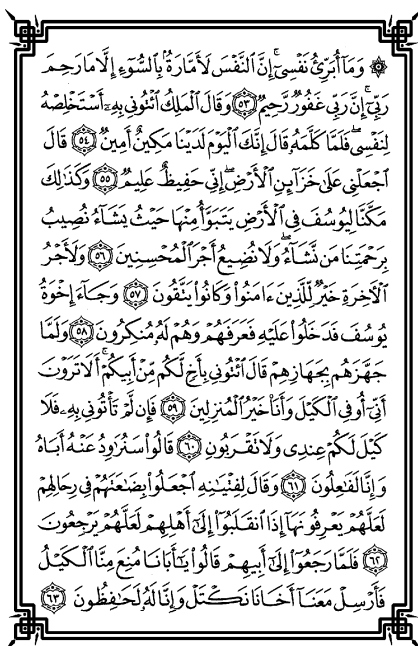 ۞ وَمَآ أُبَرِّئُ نَفْسِىٓ ۚ إِنَّ ٱلنَّفْسَ لَأَمَّارَةٌۢ بِٱلسُّوٓءِ إِلَّا مَا رَحِمَ
رَبِّىٓ ۚ إِنَّ رَبِّى غَفُورٌ رَّحِيمٌ ٥٣ وَقَالَ ٱلْمَلِكُ ٱئْتُونِى بِهِۦٓ أَسْتَخْلِصْهُ
لِنَفْسِى ۖ فَلَمَّا كَلَّمَهُۥ قَالَ إِنَّكَ ٱلْيَوْمَ لَدَيْنَا مَكِينٌ أَمِينٌ ٥٤ قَالَ
ٱجْعَلْنِى عَلَىٰ خَزَآئِنِ ٱلْأَرْضِ ۖ إِنِّى حَفِيظٌ عَلِيمٌ ٥٥ وَكَذَٰلِكَ
مَكَّنَّا لِيُوسُفَ فِى ٱلْأَرْضِ يَتَبَوَّأُ مِنْهَا حَيْثُ يَشَآءُ ۚ نُصِيبُ
بِرَحْمَتِنَا مَن نَّشَآءُ ۖ وَلَا نُضِيعُ أَجْرَ ٱلْمُحْسِنِينَ ٥٦ وَلَأَجْرُ
ٱلْءَاخِرَةِ خَيْرٌ لِّلَّذِينَ ءَامَنُوا۟ وَكَانُوا۟ يَتَّقُونَ ٥٧ وَجَآءَ إِخْوَةُ
يُوسُفَ فَدَخَلُوا۟ عَلَيْهِ فَعَرَفَهُمْ وَهُمْ لَهُۥ مُنكِرُونَ ٥٨ وَلَمَّا
جَهَّزَهُم بِجَهَازِهِمْ قَالَ ٱئْتُونِى بِأَخٍ لَّكُم مِّنْ أَبِيكُمْ ۚ أَلَا تَرَوْنَ
أَنِّىٓ أُوفِى ٱلْكَيْلَ وَأَنَا۠ خَيْرُ ٱلْمُنزِلِينَ ٥٩ فَإِن لَّمْ تَأْتُونِى بِهِۦ فَلَا
كَيْلَ لَكُمْ عِندِى وَلَا تَقْرَبُونِ ٦٠ قَالُوا۟ سَنُرَٰوِدُ عَنْهُ أَبَاهُ
وَإِنَّا لَفَٰعِلُونَ ٦١ وَقَالَ لِفِتْيَٰنِهِ ٱجْعَلُوا۟ بِضَٰعَتَهُمْ فِى رِحَالِهِمْ
لَعَلَّهُمْ يَعْرِفُونَهَآ إِذَا ٱنقَلَبُوٓا۟ إِلَىٰٓ أَهْلِهِمْ لَعَلَّهُمْ يَرْجِعُونَ
٦٢ فَلَمَّا رَجَعُوٓا۟ إِلَىٰٓ أَبِيهِمْ قَالُوا۟ يَٰٓأَبَانَا مُنِعَ مِنَّا ٱلْكَيْلُ
فَأَرْسِلْ مَعَنَآ أَخَانَا نَكْتَلْ وَإِنَّا لَهُۥ لَحَٰفِظُونَ ٦٣